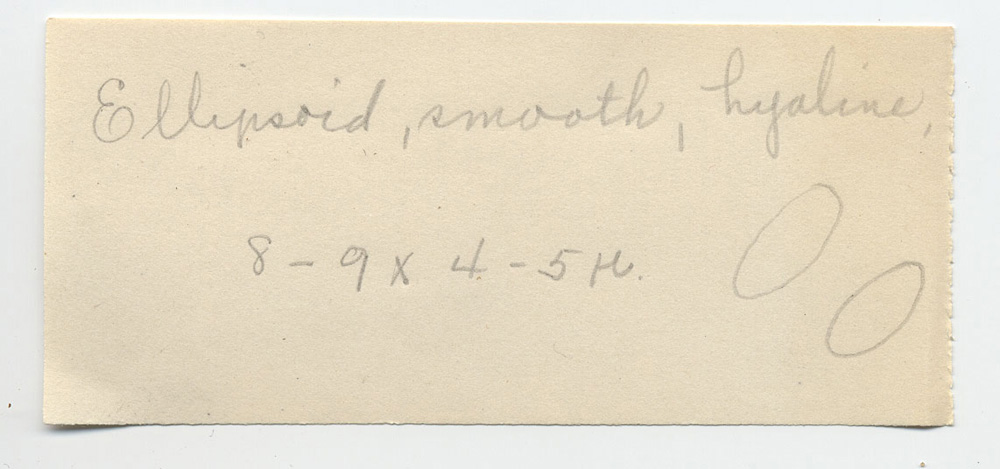 Ellipsoid, smooth, hyaline,
8 - 9 x 4 - 5 µ.